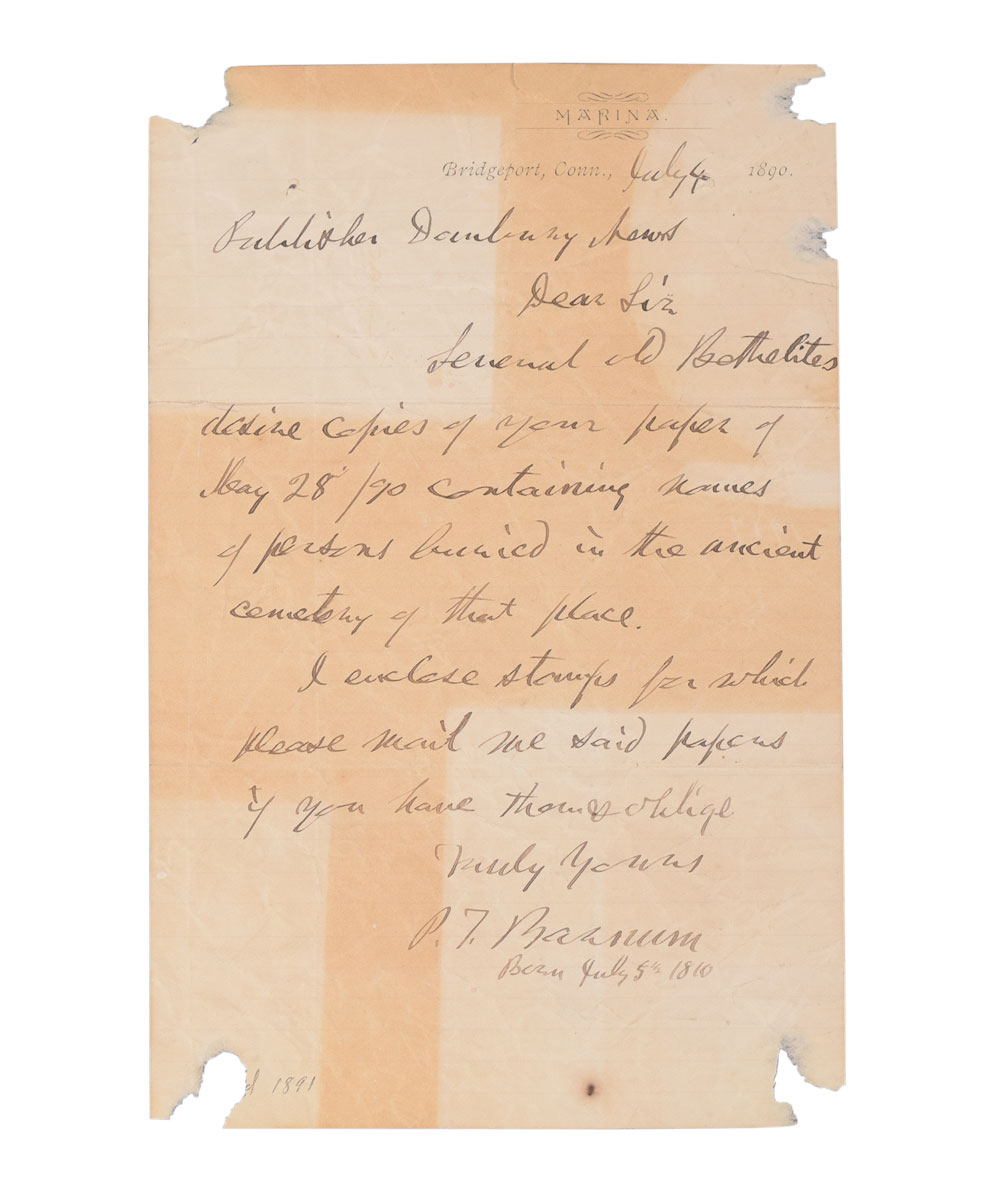 MARINA.
Bridgeport, Conn., July 4 1890.
Publisher Danbury News
Dear Sir
Several old Bethelites
desire copies of your paper of
May 28 /90 containing names
of persons buried in the ancient
cemetery of that place.
I enclose stamps for which
please mail me said papers
if you have them & oblige
Truly Yours
P. T. Barnum
Born July 5th 1810
1891